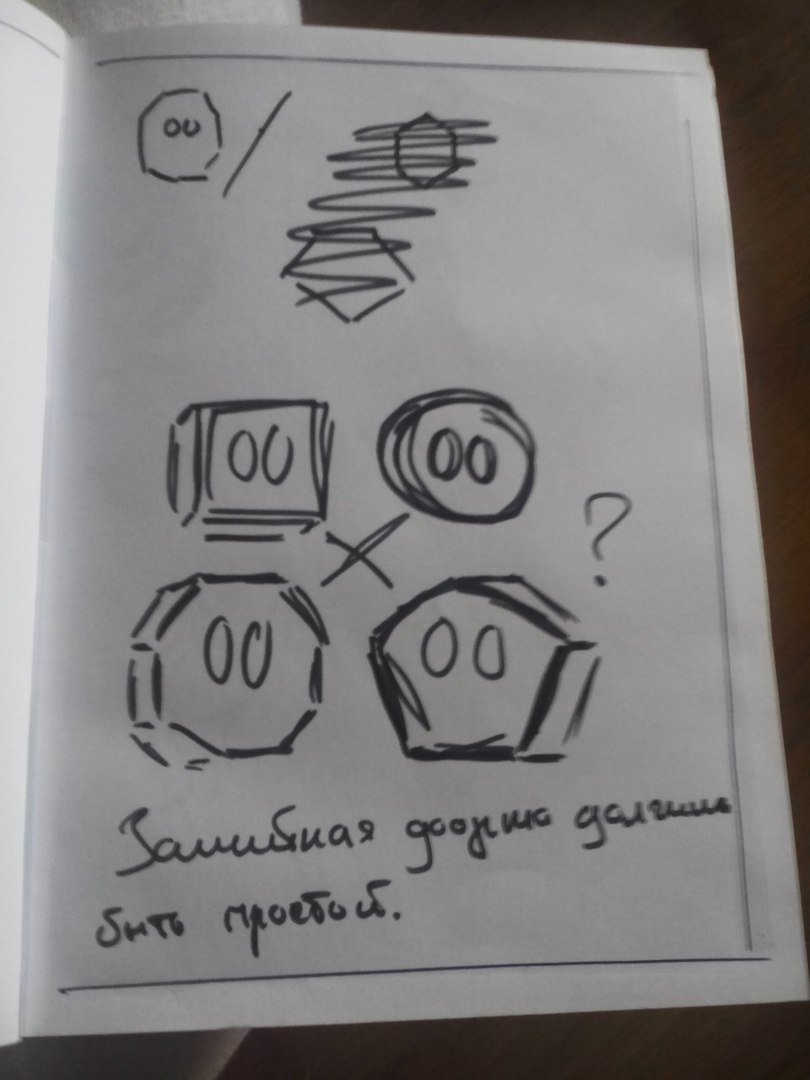 ?
Защитная форма должна
быть простой.